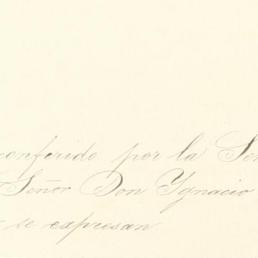 conferido por la Se
Señor Don Ygnacio
se expresan